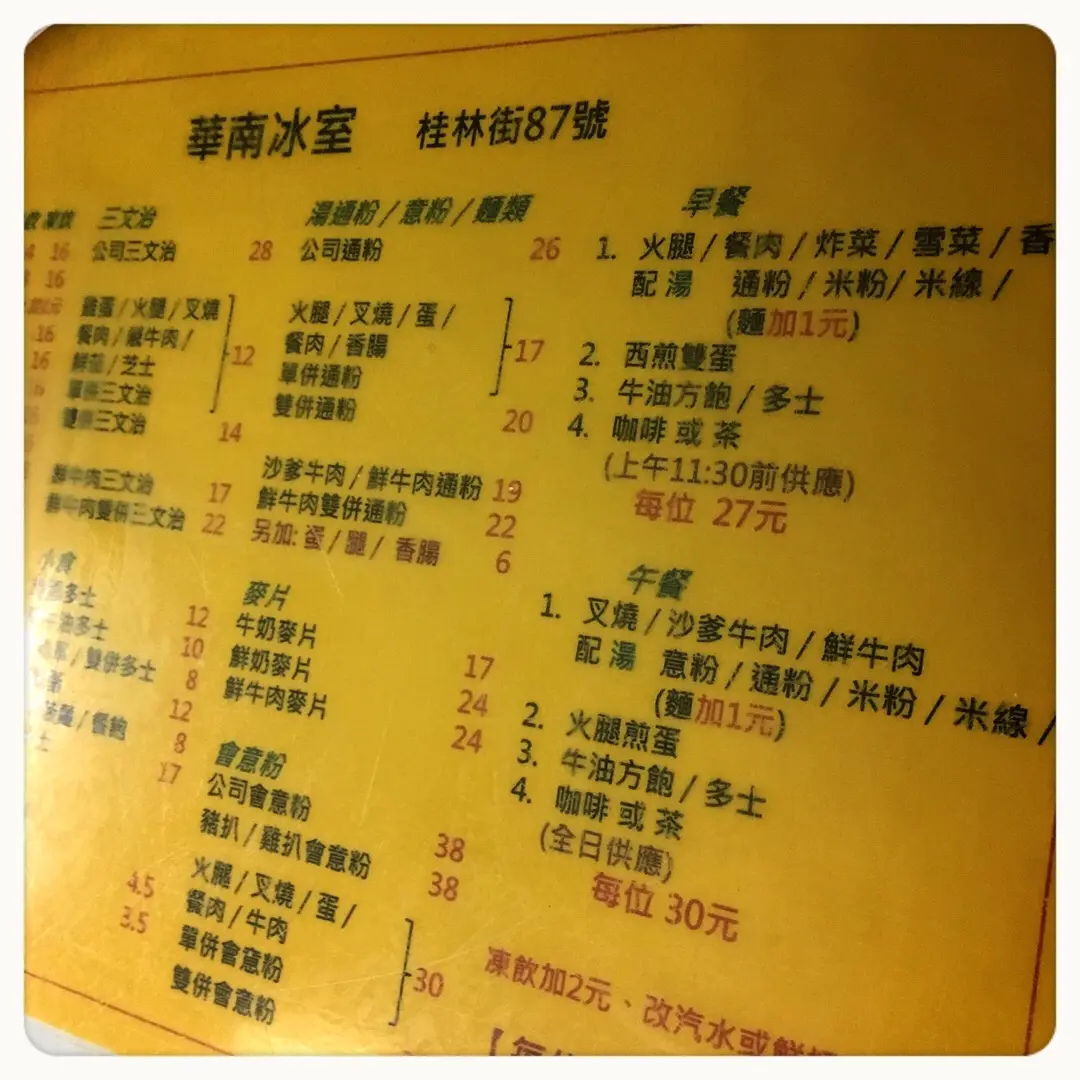 華南冰室 桂林街87號
凍飲 三文治
16 公司三文治 28
16
雞蛋/火腿/叉燒
16 餐肉/鹹牛肉/
16 鮮茄/芝士 12
單併三文治
雙併三文治 14
鮮牛肉三文治 17
鮮牛肉雙併三文治 22
小食
多士 12
牛油多士 10
/雙併多士 8
12
/餐飽 8
士 17
4.5
3.5
湯通粉/意粉/麵類
公司通粉 26
火腿/叉燒/蛋/
餐肉/香腸 17
單併通粉
雙併通粉 20
沙爹牛肉/鮮牛肉通粉 19
鮮牛肉雙併通粉 22
另加: 蛋/腿/香腸 6
麥片
牛奶麥片 17
鮮奶麥片 24
鮮牛肉麥片 24
會意粉
公司會意粉 38
豬扒/雞扒會意粉 38
火腿/叉燒/蛋/
餐肉/牛肉
單併會意粉 30
雙併會意粉
早餐
1. 火腿/餐肉/炸菜/雪菜/香
配湯 通粉/米粉/米線/
(麵加1元)
2. 西煎雙蛋
3. 牛油方飽/多士
4. 咖啡或茶
(上午11:30前供應)
每位 27元
午餐
1. 叉燒/沙爹牛肉/鮮牛肉
配湯 意粉/通粉/米粉/米線/
(麵加1元)
2. 火腿煎蛋
3. 牛油方飽/多士
4. 咖啡或茶
(全日供應)
每位 30元
凍飲加2元、改汽水或鮮
【每